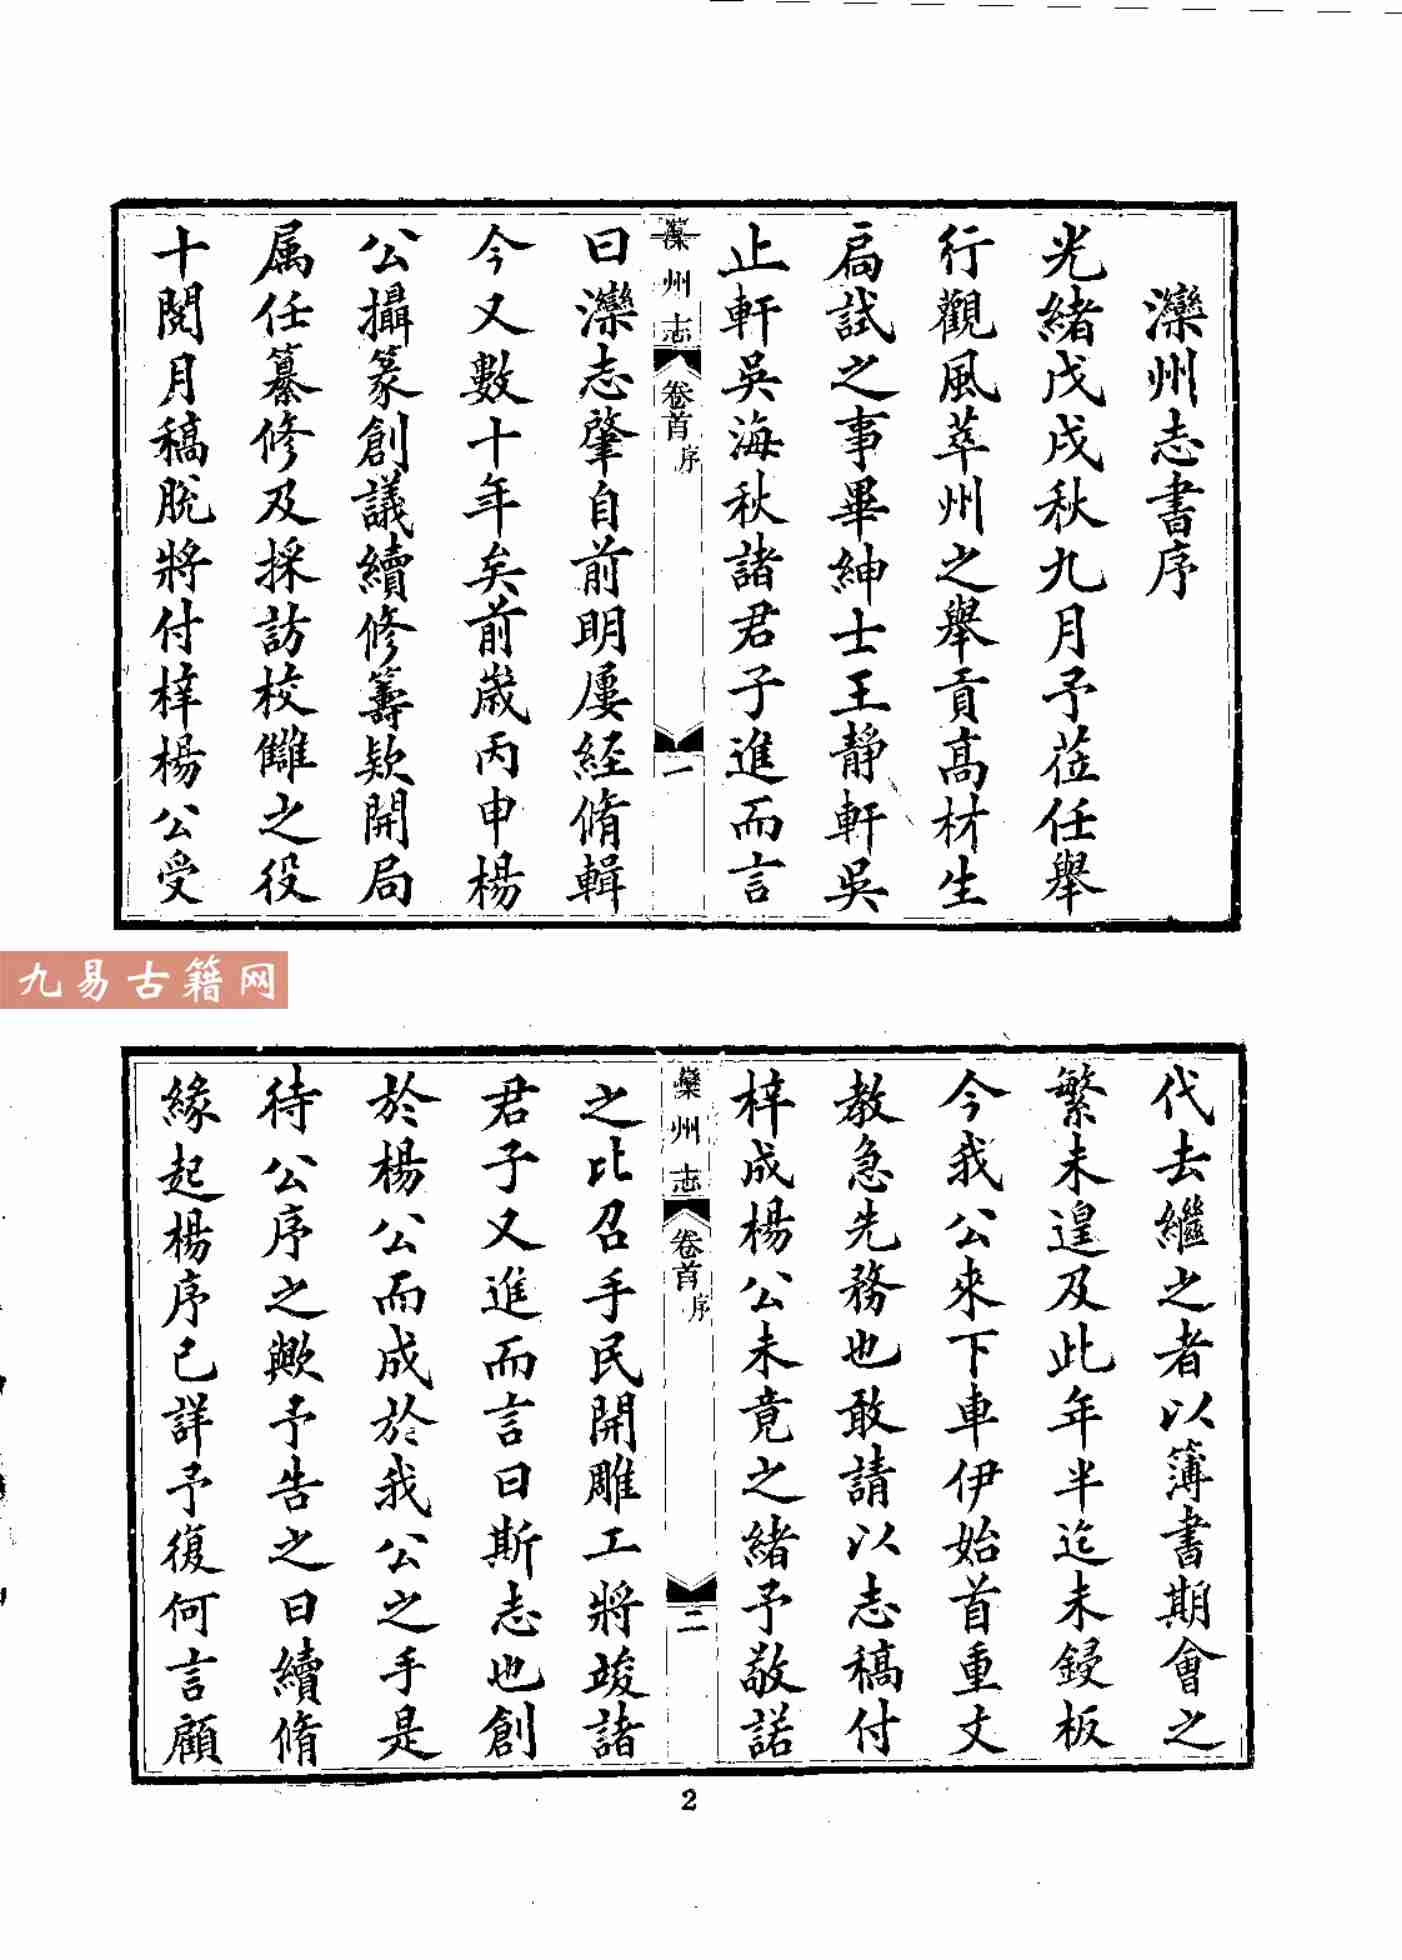 灤州志書序
光緒戊戌秋九月予莅任舉
行觀風萃州之舉貢高材生
扃試之事畢紳士王靜軒吳
止軒吳海秋諸君子進而言
灤州志 卷首 序 一
曰灤志肇自前明屢經脩輯
今又數十年矣前歲丙申楊
公攝篆創議續修籌欵開局
属任纂修及採訪校讎之役
十閱月稿脫將付梓楊公受
九易古籍网
代去繼之者以簿書期會之
繁未遑及此年半迄未鋟板
今我公來下車伊始首重文
教急先務也敢請以志稿付
梓成楊公未竟之緒予敬諾
灤州志 卷首 序 二
之比召手民開雕工將竣諸
君子又進而言曰斯志也創
於楊公而成於我公之手是
待公序之歟予告之曰續脩
緣起楊序已詳予復何言顧
2